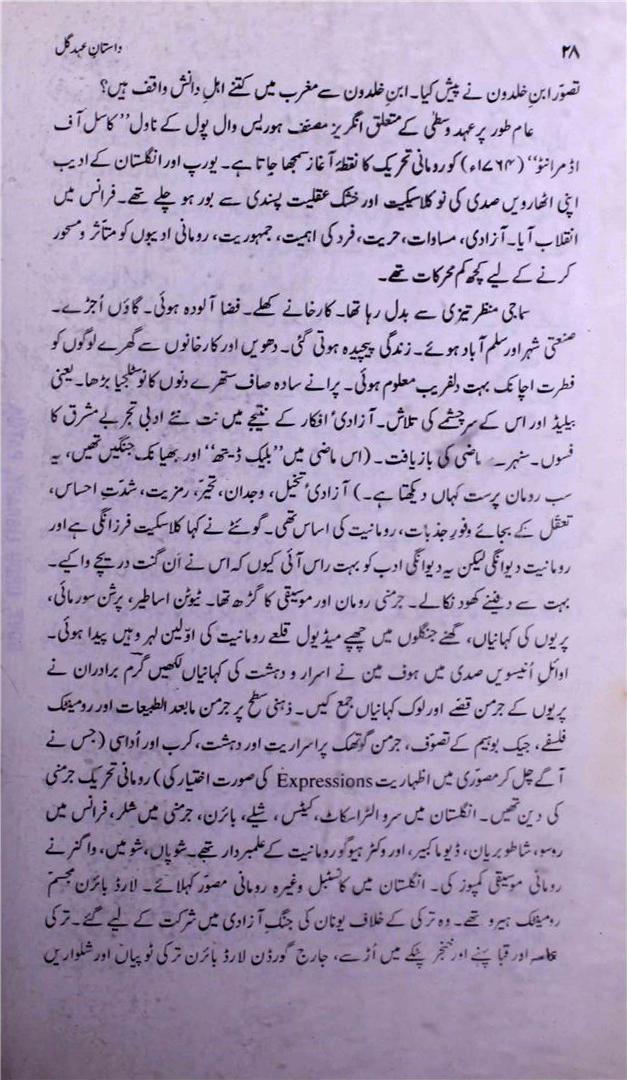 ۲۸ داستانِ عہدِ گل
تصوّر ابنِ خلدون نے پیش کیا۔ ابنِ خلدون سے مغرب میں کتنے اہلِ دانش واقف ہیں؟
عام طور پر عہدِ وسطیٰ کے متعلق انگریز مصنف ہوریس وال پول کے ناول ”کاسل آف
اڈمرانٹو“ (۱۷۶۴ء) کو رومانی تحریک کا نقطۂ آغاز سمجھا جاتا ہے۔ یورپ اور انگلستان کے ادیب
اپنی اٹھارویں صدی کی نوکلاسیکیت اور خشک عقلیت پسندی سے بور ہو چلے تھے۔ فرانس میں
انقلاب آیا۔ آزادی، مساوات، حریت، فرد کی اہمیت، جمہوریت، رومانی ادیبوں کو متأثر و مسحور
کرنے کے لیے کچھ کم محرکات تھے۔
سماجی منظر تیزی سے بدل رہا تھا۔ کارخانے کھلے۔ فضا آلودہ ہوئی۔ گاؤں اُجڑے۔
صنعتی شہر اور سلم آباد ہوئے۔ زندگی پیچیدہ ہوتی گئی۔ دھویں اور کارخانوں سے گھرے لوگوں کو
فطرت اچانک بہت دلفریب معلوم ہوئی۔ پرانے سادہ صاف ستھرے دنوں کا نوسٹلجیا بڑھا۔ یعنی
بیلیڈ اور اس کے سرچشمے کی تلاش۔ آزادیٔ افکار کے نتیجے میں نت نئے ادبی تجربے مشرق کا
فسوں۔ سنہرے ماضی کی بازیافت۔ (اس ماضی میں ”بلیک ڈیتھ“ اور بھیانک جنگیں تھیں، یہ
سب رومان پرست کہاں دیکھتا ہے۔) آزادیٔ تخیل، وجدان، تحیّر، رمزیت، شدّتِ احساس،
تعقّل کے بجائے وفورِ جذبات، رومانیت کی اساس تھی۔ گوئٹے نے کہا کلاسکیت فرزانگی ہے اور
رومانیت دیوانگی لیکن یہ دیوانگی ادب کو بہت راس آئی کیوں کہ اس نے اَن گنت دریچے وا کیے۔
بہت سے دفینے کھود نکالے۔ جرمنی رومان اور موسیقی کا گڑھ تھا۔ ٹیوٹن اساطیر، پرشن سورمائی،
پریوں کی کہانیاں، گھنے جنگلوں میں چھپے میڈیول قلعے رومانیت کی اوّلین لہر وہیں پیدا ہوئی۔
اوائلِ اُنیسویں صدی میں ہوف مین نے اسرار و دہشت کی کہانیاں لکھیں گرم برادران نے
پریوں کے جرمن قصّے اور لوک کہانیاں جمع کیں۔ ذہنی سطح پر جرمن مابعدالطبیعات اور رومینٹک
فلسفے، جیک بوہیم کے تصوّف، جرمن گوتھک پر اسراریت اور دہشت، کرب اور اُداسی (جس نے
آگے چل کر مصوّری میں اظہاریت Expressions کی صورت اختیار کی) رومانی تحریک جرمنی
کی دین تھیں۔ انگلستان میں سر والٹر اسکاٹ، کیٹس، شیلے، بائرن، جرمنی میں شلر، فرانس میں
روسو، شاطوبریان، ڈیوما کبیر، اور وکٹر ہیوگو رومانیت کے علمبردار تھے۔ شوپاں، شومیں، واگنر نے
رومانی موسیقی کمپوز کی۔ انگلستان میں کانسٹبل وغیرہ رومانی مصوّر کہلائے۔ لارڈ بائرن مجسم
رومینٹک ہیرو تھے۔ وہ ترکی کے خلاف یونان کی جنگِ آزادی میں شرکت کے لیے گئے۔ ترکی
عمامہ اور قبا پہنے اور خنجر پٹکے میں اُڑسے، جارج گورڈن لارڈ بائرن ترکی ٹوپیاں اور شلواریں